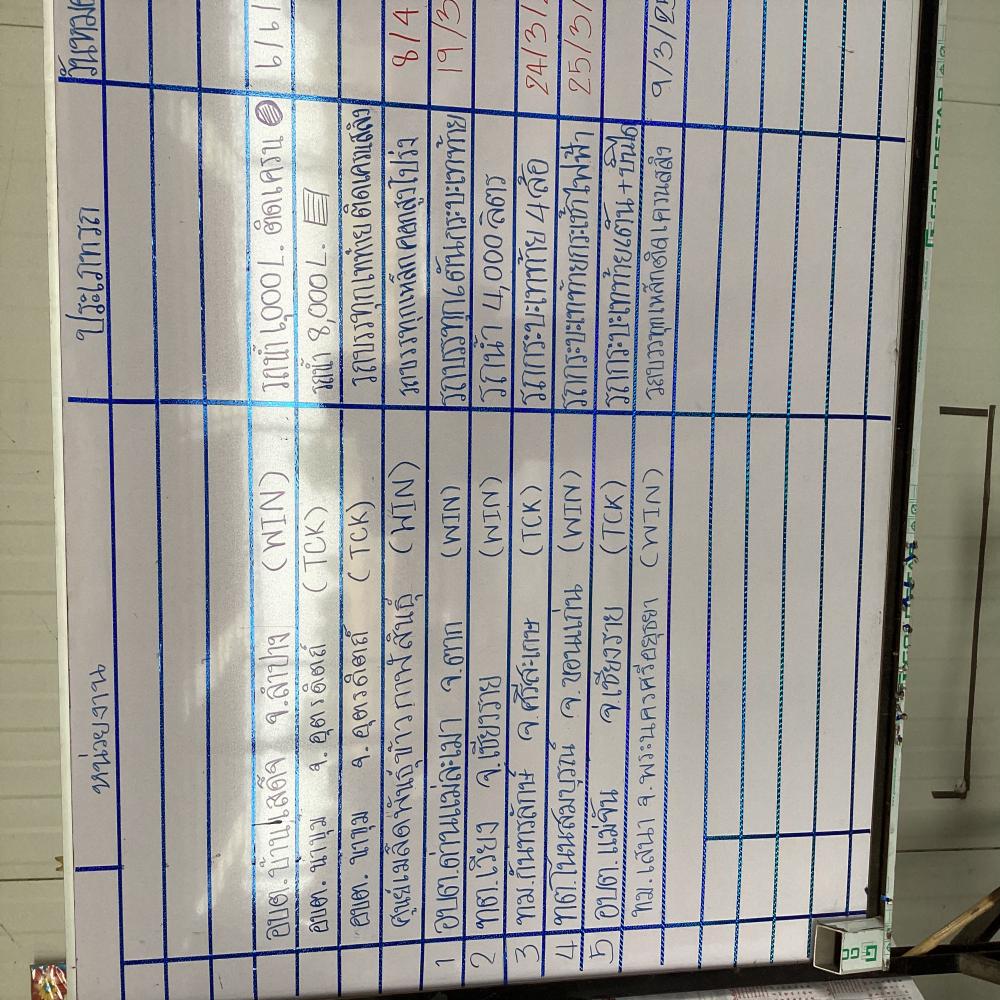 หน่วยงาน ประเภทรถ
อบต.บ้านเสด็จ จ.ลำปาง (WIN) รถน้ำ 6,000 L. ติดเครน 6/6/
อบต. น้ำขุม จ. อุตรดิตถ์ (TCK) รถน้ำ 8,000 L.
อบต. นาขุม จ. อุตรดิตถ์ (TCK) รถบรรทุกเทท้ายติดเครนสลิง
ศูนย์เมล็ดพันธุ์ข้าวกาฬสินธุ์ (WIN) รถบรรทุกเหล็กคอกสูงโปร่ง 8/4
1 อบต.ด่านแม่ละเมา จ.ตาก (WIN) รถบรรทุกเตันกระบะเทท้าย 19/3
2 ทต.เวียง จ.เชียงราย (WIN) รถน้ำ 4,000 ลิตร
3 ทม.กันทรลักษ์ จ.ศรีสะเกษ (TCK) รถกระบะเทท้าย 4 ล้อ 24/3/
4 ทต.โนนสมบูรณ์ จ.ขอนแก่น (WIN) รถกระบะเทท้ายกระเช้าไฟฟ้า 25/3/
5 อบต.แม่จัน จ.เชียงราย (TCK) รถกระบะเทท้ายเต็น+
ทม.เสนา จ.พระนครศรีอยุธยา (WIN) รถบรรทุกเหล็กติดเครนสลิง 9/3/25